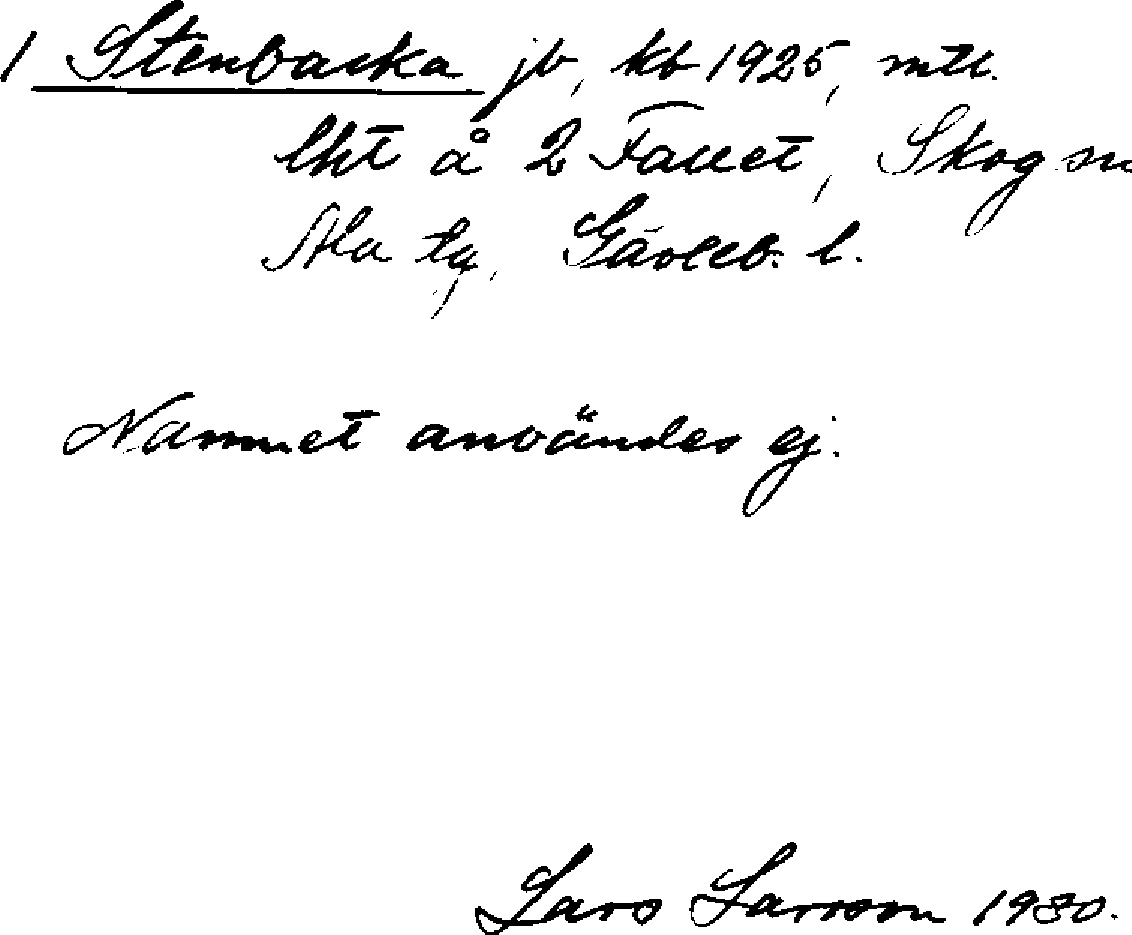 1 Stenbacka jb, kb 1925, mtl.
lht å 2 Fallet, Skog sn
Ala tg, Gävleb. l.
Namnet användes ej.
Lars Larsson 1930.